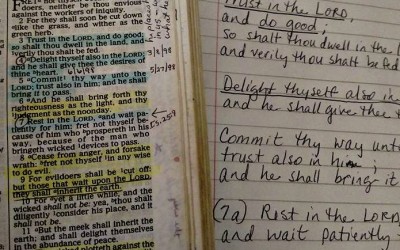 FRET not
doers, neither be thou envious
against the workers of iniquity.
2 For they shall soon be cut down
like the grass, and wither as the
green herb.
3 Trust in the LORD, and do good;
so shalt thou dwell in the land, and
verily thou shalt be fed.
4 Delight thyself also in the LORD;
and he shall give thee the desires
of thine heart. 6/6/98
5 Commit thy way unto the
LORD; trust also in him; and he shall
bring it to pass.
6 And he shall bring forth thy
righteousness as the light, and thy
judgment as the noonday.
7 Rest in the LORD, and wait pa-
tiently for him: fret not thyself be-
cause of him who prospereth in his
way, because of the man who
bringeth wicked devices to pass.
8 Cease from anger, and forsake
wrath: fret not thyself in any wise
to do evil.
9 For evildoers shall be cut off:
but those that wait upon the LORD,
they shall inherit the earth.
10 For yet a little while, and the
wicked shall not be: yea, thou shalt
diligently consider his place, and it
shall not be.
11 But the meek shall inherit the
earth; and shall delight themselves
in the abundance of peace.
plotteth against the
3/8/98
5/27/98
Trust in the LORD,
and do good;
so shalt thou dwell in the l
and verily thou shalt be fed
Delight thyself also in
and he shall give thee t
Commit thy way unto
trust also in him;
and he shall bring it
(7a) Rest in the LORD
and wait patiently